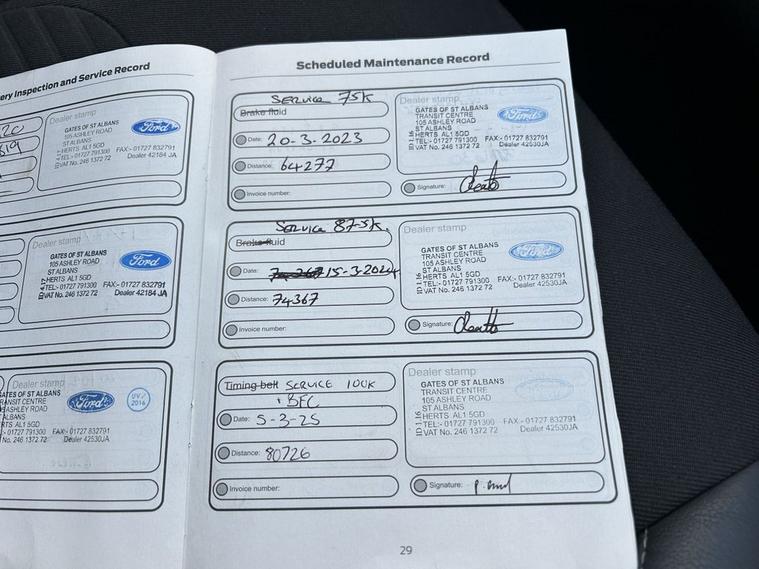 ery Inspection and Service Record
20
Dealer stamp
GATES OF ST ALBANS
105 ASHLEY ROAD
ST ALBANS
HERTS AL1 5GD
TEL:- 01727 791300 FAX:- 01727 832791
VAT No. 246 1372 72 Dealer 42184 JA
Ford
Dealer stamp
GATES OF ST ALBANS
105 ASHLEY ROAD
ST ALBANS
HERTS AL1 5GD
TEL:- 01727 791300 FAX:- 01727 832791
VAT No. 246 1372 72 Dealer 42184 JA
Ford
Dealer stamp
GATES OF ST ALBANS
TRANSIT CENTRE
ASHLEY ROAD
ALBANS
HERTS AL1 5GD
:- 01727 791300 FAX:- 01727 832791
No. 246 1372 72 Dealer 42530JA
Ford
UV/
2016
Scheduled Maintenance Record
SERVICE 75K
Brake fluid
Date: 20-3-2023
Distance: 64277
Invoice number:
Dealer stamp
GATES OF ST ALBANS
TRANSIT CENTRE
105 ASHLEY ROAD
ST ALBANS
HERTS AL1 5GD
TEL:- 01727 791300 FAX:- 01727 832791
VAT No. 246 1372 72 Dealer 42530JA
Ford
Signature:
SERVICE 87-5K.
Brake fluid
Date: 15-3-2024
Distance: 74367
Invoice number:
Dealer stamp
GATES OF ST ALBANS
TRANSIT CENTRE
105 ASHLEY ROAD
ST ALBANS
HERTS AL1 5GD
TEL:- 01727 791300 FAX:- 01727 832791
VAT No. 246 1372 72 Dealer 42530JA
Ford
Signature:
Timing belt SERVICE 100K
+ BFC
Date: 5-3-25
Distance: 80726
Invoice number:
Dealer stamp
GATES OF ST ALBANS
TRANSIT CENTRE
105 ASHLEY ROAD
ST ALBANS
HERTS AL1 5GD
TEL:- 01727 791300 FAX:- 01727 832791
VAT No. 246 1372 72 Dealer 42530JA
Signature:
29